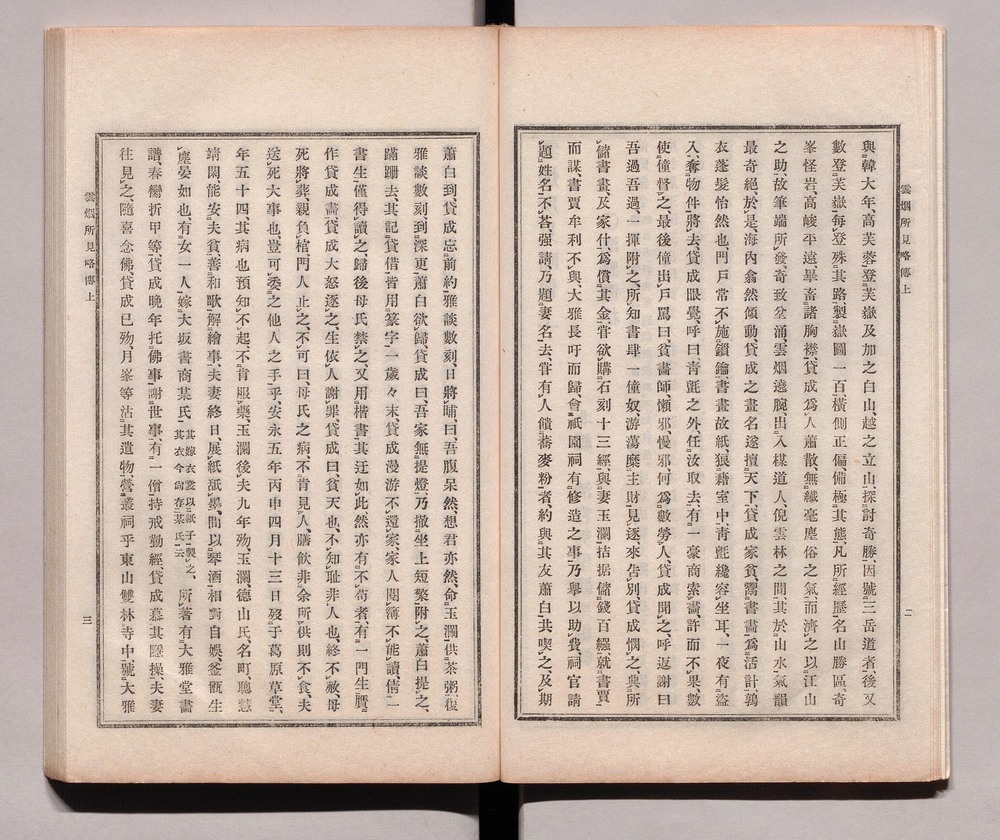 與韓大年、高芙蓉登芙嶽及加之白山、越之立山、探討奇勝、因號三岳道者、後又
數登芙嶽、每登殊其路、製嶽圖一百、橫側正偏、備極其態、凡所經歷名山勝區、奇
峯怪岩、高峻平遠、畢畜諸胸襟、貸成爲人蕭散、無纖毫塵俗之氣、而濟之以江山
之助、故筆端所發、奇致坌涌、雲烟遶腕、出入楳道人、倪雲林之間、其於山水、氣韻
最奇絕、於是海內翕然傾動、貸成之畫名遂擅天下、貸成家貧、鬻書畫爲活計、鶉
衣蓬髮怡然也、門戶常不施鎖鑰、書畫故紙狼藉室中、靑氈纔容坐耳、一夜有盜
入、奪物件將去、貸成眼覺、呼曰、靑氈之外、任汝取去、有一豪商索畫、許而不果、數
使僮督之、最後僮出戶罵曰、貧畫師、懶邪、慢邪、何爲數勞人、貸成聞之、呼返謝曰
吾過吾過、一揮附之、所知書肆一僮奴、游蕩糜主財見逐、來告別、貸成憫之、與所
儲書畫、及家什、爲償其金、嘗欲購石刻十三經、與妻玉瀾拮据儲錢百緡、就書賈
而謀、書賈牟利不與、大雅長吁而歸、會祇園祠有修造之事、乃擧以助費、祠官請
題姓名、不答、强請、乃題妻名去、嘗有人饋蕎麥粉者、約與其友蕭白共喫之、及期
雲烟所見略傳上
二
蕭白到、貸成忘前約、雅談數刻、日將晡、曰、吾腹呆然、想君亦然、命玉瀾供茶粥、復
雅談數刻、到深更、蕭白欲歸、貸成曰、吾家無提燈、乃撤坐上短檠附之、蕭白提之、
蹣跚去、其記貸借皆用篆字、一歲々末、貸成漫游不還家、家人閱簿不能讀、倩一
書生僅得讀之、歸後母氏禁之、又用楷書、其迂如此、然亦有不苟者、有一門生贋
作貸成畫、貸成大怒逐之、生依人謝罪、貸成曰、貧天也、不知耻非人也、終不赦、母
死將葬、親負棺、門人止之、不可、曰、母氏之病、不肯見人、膳飮非余所供則不食、夫
送死大事也、豈可委之他人之手乎、安永五年丙申四月十三日歿于葛原草堂、
年五十四、其病也預知不起、不肯服藥、玉瀾後夫九年歿、玉瀾、德山氏、名町、聰慧
靖閑、能安夫貧、善和歌、解繪事、夫妻終日、展紙舐墨、間以琴酒相對自娛、釜甑生
塵晏如也、有女一人、嫁大坂書商某氏、其嫁衣裳以紙子製之、其衣今尙存某氏云所著有大雅堂畫
譜、春臠折甲等、貸成晚年托佛事謝世事、有一僧持戒勤經、貸成慕其隱操、夫妻
往見之、隨喜念佛、貸成已歿、月峯等沽其遺物營叢祠乎東山雙林寺中、號大雅
雲烟所見略傳上
三